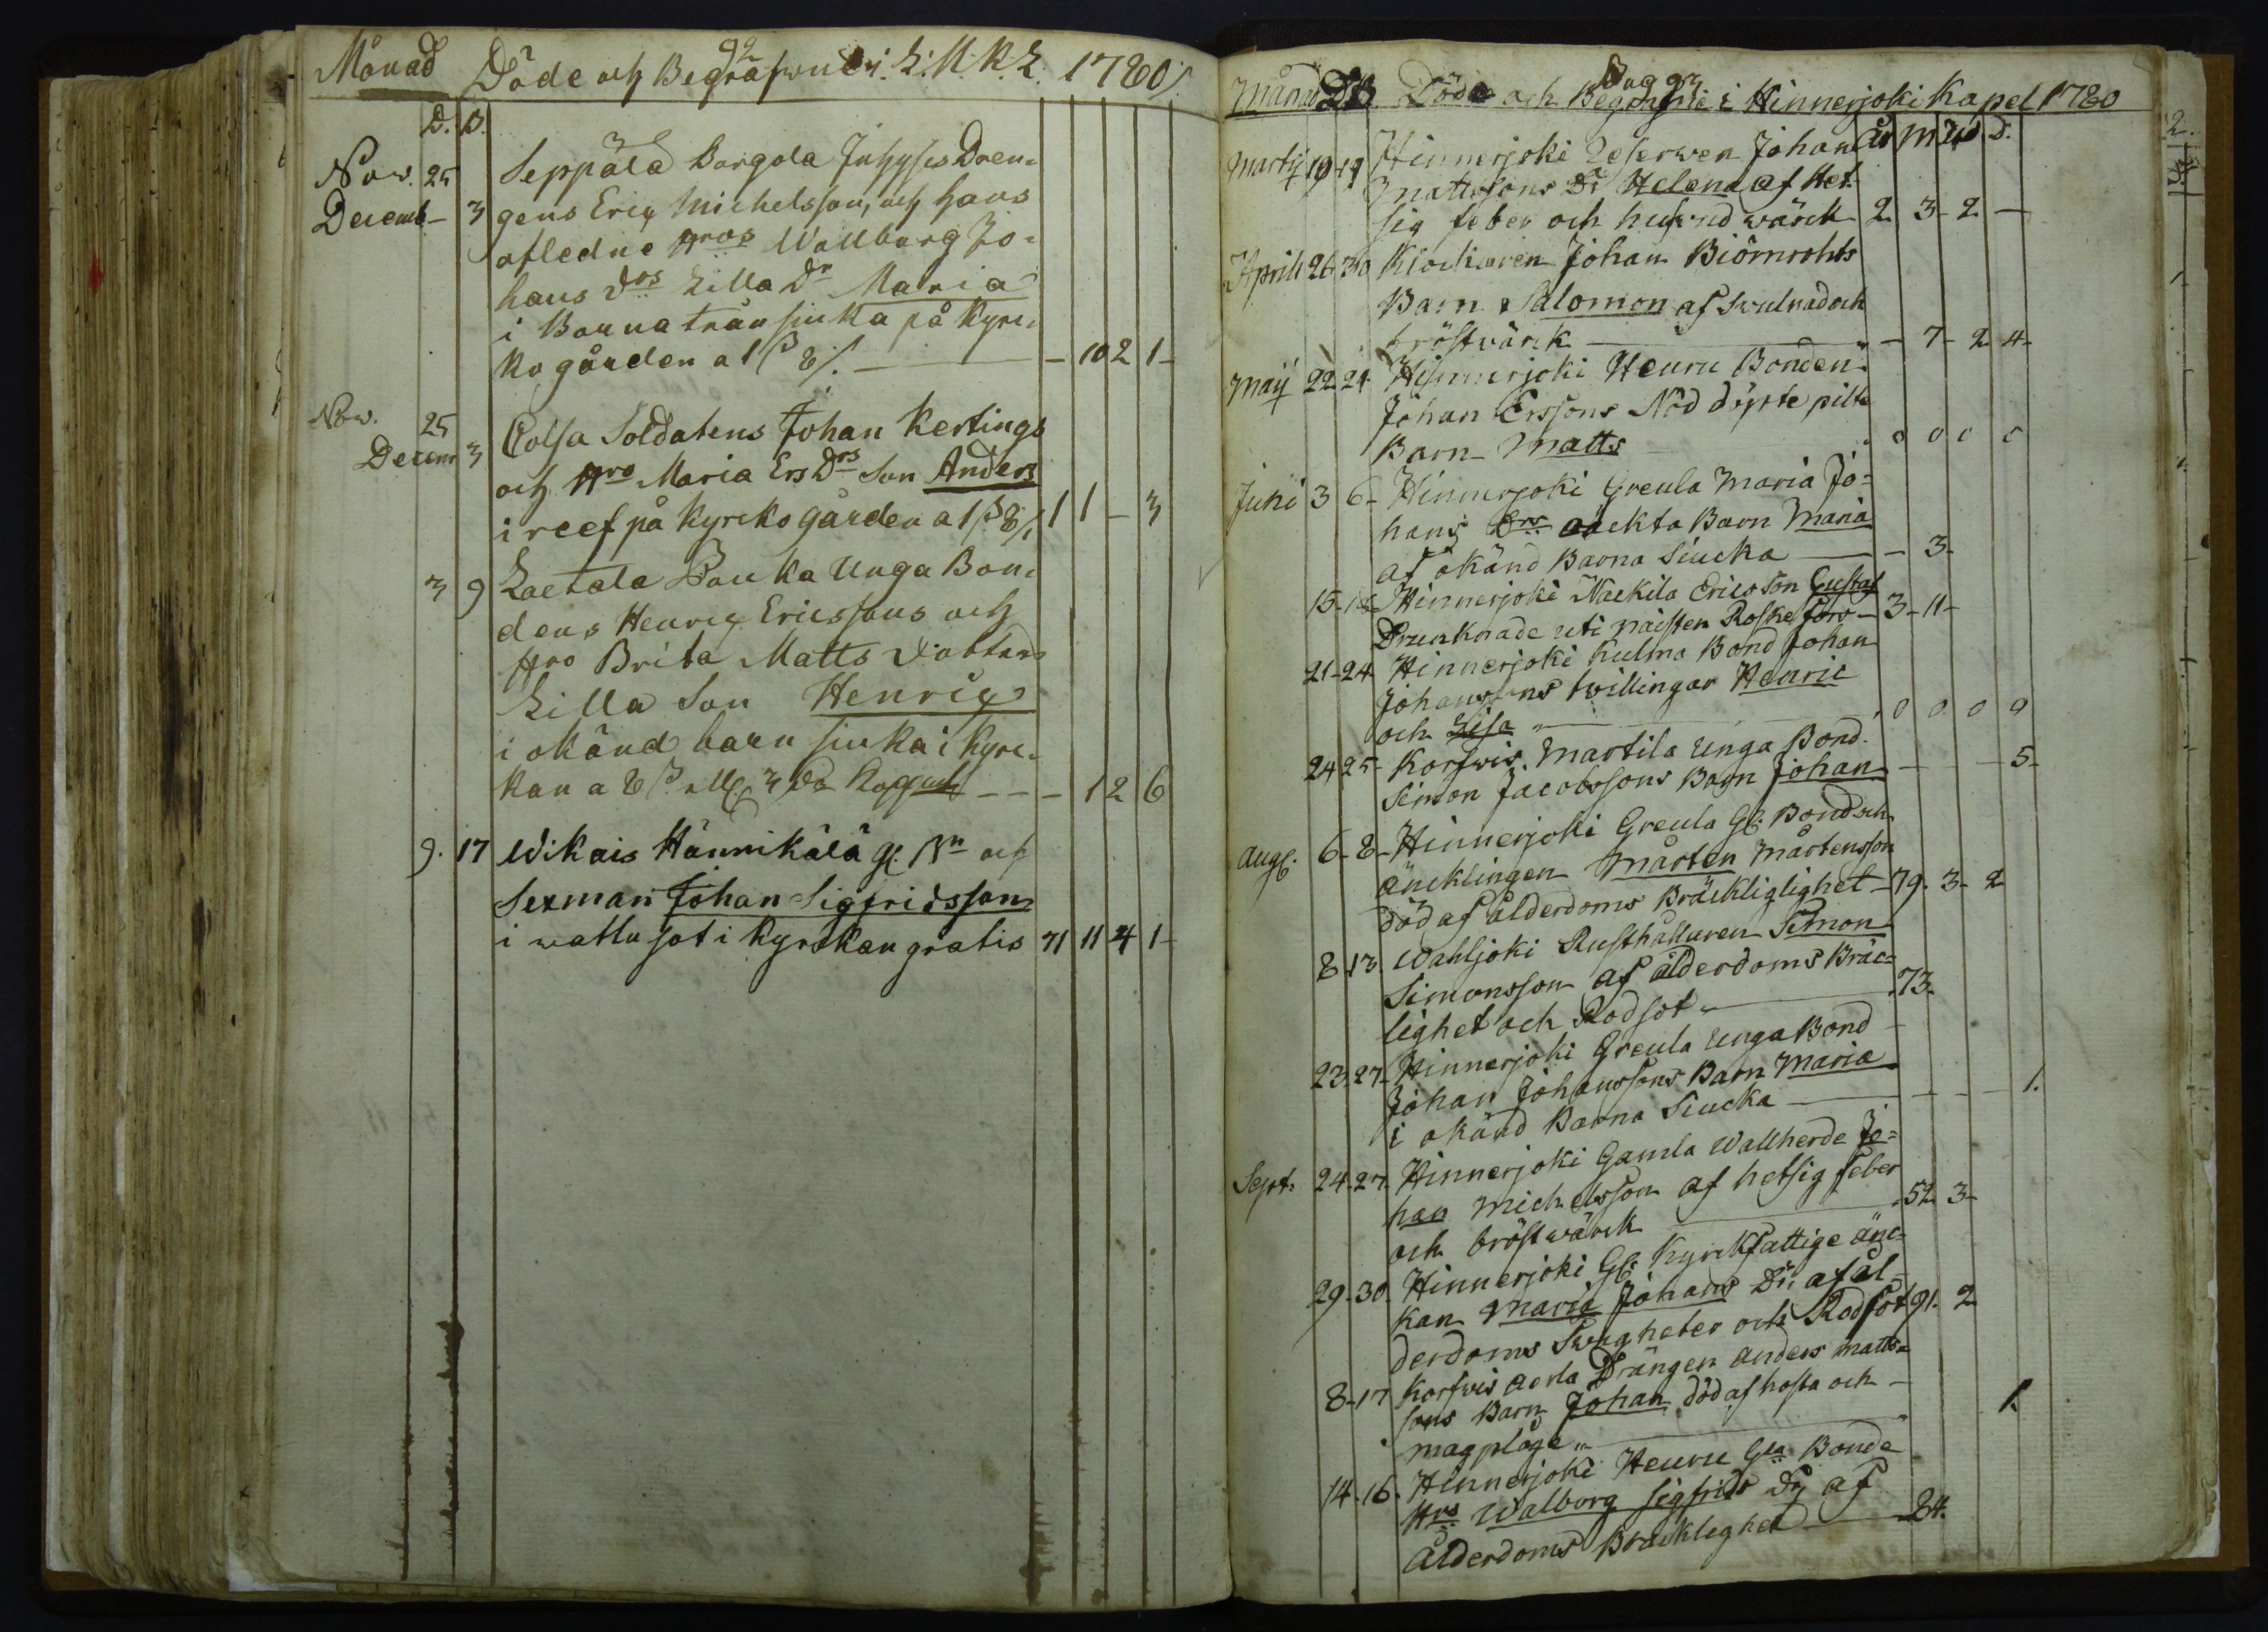 Månad Döde och Begrafwne i L. M. K. L. 1780
92
D. B.
Now. 25 Seppälä Borgola Juhyses Dren-
Decemb - 3 gens Eric Michelsson, och hans
afledne Hros Wallborg Jo-
hans Drs Lilla Dr Maria
i Barnatrånsiuka på Kyrc-
ko gården a 1 ß 8/. - 10 2 1 -
Now. 25 Colsa Soldatens Johan Kertings
Decem 3 och Hro Maria Ers Drs Son Anders
i reef på Kyrcko gården a 1 ß 8/. 1 1 - 3
3 9 Laetala Pouka Unga Bon-
dens Henric Ericssons och
Hro Brita Matts Dotters
Lilla Son Henric
i okänd barn siuka i Kyrc-
kan a 8 ß - - - 1 2 6
9. 17 Wikais Hännikälä gl. Bn och
Sexman Johan Sigfridsson
i wattusot i Kyrckan gratis 71 11 4 1 -
Månad D B. Döde och Begrafne i Hinnerjoki Kapel 1780
93
år m w d.
Martij 19 19 Hinnerjoki Johan
Mattssons Dr Helena af Het-
sig feber och hufwud wärck 2 3 - 2 -
Aprill 26 30 Klockaren Johan Biörnrohts
Barn Salomon af Swulnad och
bröstwärck - 7 - 2 4 -
Maij 22 24 Hinnerjoki Heuru Bonden
Johan Erssons Nöd döpte pilte
Barn Matts 0 0 0 0
Juni 3 6 - Hinnerjoki Greula Maria Jo-
hans Drs oäckta Barn Maria
af okänd Barna Siucka - 3 -
15 - 18 - Hinnerjoki Nackila Ericsson Gustaf
Drunknade uti näesten Roskefors - 3 - 11 -
21 - 24 Hinnerjoki Kulma Bond Johan
Johanssons twillingar Henric
och Lisa 0 0 0 0
24 25 - Korfwis. Martila Unga Bond.
Simon Jacobssons Barn Johan - - - 5 -
Aug. 6 - 8 - Hinnerjoki Greula Gl. Bond och
äncklingen Mårten Mårtensson
död af ålderdoms Bräckliglighet - 79. 3 - 2
8 13. Wahljoki Rusthållaren Simon
Simonsson af ålderdoms Bräc-
lighet och Rodsot 73.
23. 27 - Hinnerjoki Greula Unga Bond
Johan Johanssons Barn Maria
i okänd Barna Siucka - - - 1.
Sept: 24. 27. Hinnerjoki Gamla Wallherde Jo-
han Michelsson af hetsig feber
och bröstwärck 52 3 -
29. 30. Hinnerjoki Gl. Kyrckfattige änc-
kan Maria Johans Dr af ål-
derdoms Swagheter och Rodsot 91. 2
8 - 17 Korfwis aerla Drängen Anders Matts-
sons Barn Johan död af hosta och
magplåge 1.
14 - 16. Hinnerjoki Heuru Gla Bonde
Hrs Walborg Sigfrids Dr af
Ålderdoms Bräcklighet 84.